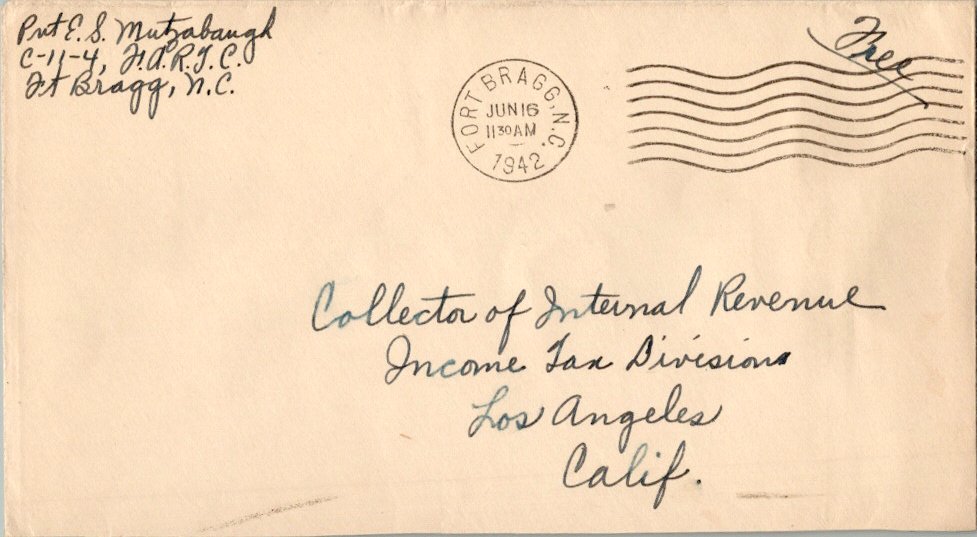 Pvt E. S. Mutzabaugh
C-11-4, F.A.R.T.C.
Ft Bragg, N.C.
Free
FORT BRAGG, N.C.
JUN 16
11 30 AM
1942
Collector of Internal Revenue
Income Tax Division
Los Angeles
Calif.